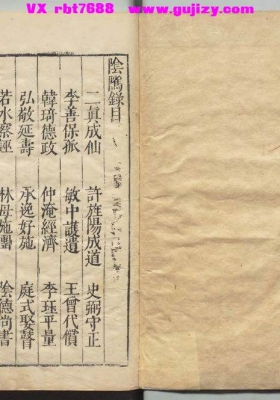 VX rbt7688 www.gujizy.com
陰隲錄目
二眞成仙 許旌陽成道 史弼守正
李善保孤 敏中護遺 王曾代償
韓琦德政 仲淹經濟 李珏平量
弘敬延壽 承逸好施 庭式娶瞽
若水察誣 林母施團 陰德尚書